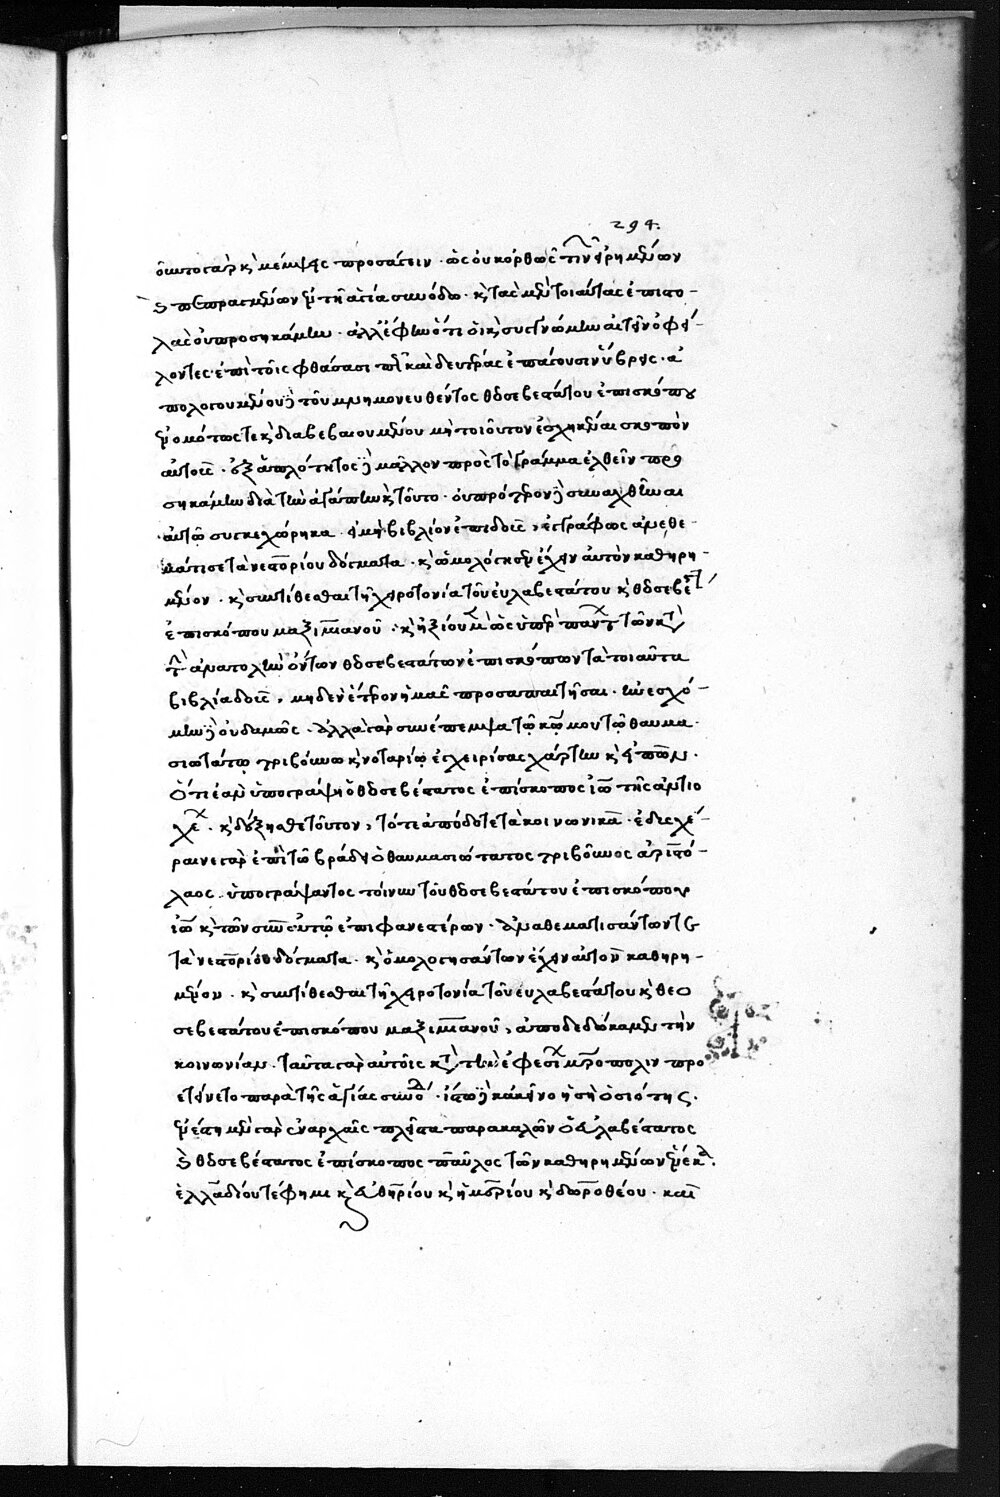 294.
ᾤετο γὰρ κ(αὶ) μέμψεις προσάγειν. ὡς οὐκ ὀρθῶς τινῶν εἰρημένων
ἢ πεπραγμένων ἐν τῇ ἁγία συνόδω. κ(αὶ) τὰς μὲν τοιαύτας ἐπιστο-
λὰς οὐ προσηκάμην. ἀλλ' ἔφην ὅτι οἱ κ(αὶ) συγγνώμην αἰτεῖν ὀφεί-
λοντες ἐπὶ τοῖς φθάσασι πάλιν καὶ δευτέρας ἐπάγουσιν ὕβρεις. ἀ
πολογουμένου δὲ τοῦ μνημονευθέντος θεοσεβεστάτου ἐπισκόπου
ἐνωμότως τε κ(αὶ) διαβεβαιουμένου μὴ τοιοῦτον ἐσχηκέναι σκοπὸν
αὐτοὺς. ἐξ ἁπλότητος δὲ μᾶλλον πρὸς τὸ γράμμα ἐλθεῖν προ
σηκάμην διὰ τὴν ἀγάπην κ(αὶ) τοῦτο. οὐ πρότερον δὲ συναχθῆναι
αὐτῶ συγκεχώρηκα. εἰ μὴ βιβλίον ἐπιδοὺς, ἐγγράφως ἀνεθε-
μάτισε τὰ νεστορίου δόγματα. κ(αὶ) ὡμολόγησεν ἔχειν αὐτὸν καθηρη-
μένον. κ(αὶ) συντίθεσθαι τῇ χειροτονία τοῦ εὐλαβεστάτου κ(αὶ) θεοσεβεστ(άτου)
ἐπισκόπου μαξιμιανοῦ. κ(αὶ) ἠξίου μὲν ὡς ὑπὲρ πάντων τῶν κατὰ
τὴν ἀνατολὴν ὄντων θεοσεβεστάτων ἐπισκόπων τὰ τοιαῦτα
βιβλία δοὺς, μηδὲν ἕτερον ἡμᾶς προσαπαιτῆσαι. ἠνεσχό-
μην δὲ οὐδαμῶς. ἀλλὰ γὰρ συνέπεμψα τῶ κυρίω μου τῶ θαυμα-
σιωτάτω τριβούνω κ(αὶ) νοταρίω ἐγχειρίσας χάρτην κ(αὶ) εἰπὼν.
ὅτι ἐὰν ὑπογράψῃ ὁ θεοσεβέστατος ἐπίσκοπος ἰω τῆς ἀντιο
χεί. κ(αὶ) δέξησθε τοῦτον, τότε ἀπόδοτε τὰ κοινωνικὰ. ἐδυσχέ-
ραινε γὰρ ἐπὶ τῶ βράδει ὁ θαυμασιώτατος τριβοῦνος ἀριστό-
λαος. ὑπογράψαντος τοίνυν τοῦ θεοσεβεστάτου ἐπισκόπου
ἰω κ(αὶ) τῶν σὺν αὐτῶ ἐπιφανεστέρων. ἀναθεματισάντων τε
τὰ νεστορίου δόγματα. κ(αὶ) ὁμολογησάντων ἔχειν αὐτὸν καθηρη-
μένον. κ(αὶ) συντίθεσθαι τῇ χειροτονία τοῦ εὐλαβεστάτου κ(αὶ) θεο
σεβεστάτου ἐπισκόπου μαξιμιανοῦ, ἀποδεδώκαμεν τὴν
κοινωνίαν. ταῦτα γὰρ αὐτοῖς κατὰ τὴν ἐφεσί μητρόπολιν προ
ετείνετο παρὰ τῆς ἁγίας συνόδ. ἴστω δὲ κἀκεῖνο ἡ σὴ ὁσιότης.
ἐνέστη μὲν γὰρ ἐν ἀρχαῖς πλεῖστα παρακαλῶν ὁ εὐλαβέστατος
κ(αὶ) θεοσεβέστατος ἐπίσκοπος παῦλος τῶν καθηρημένων ἕνεκα.
ἑλλαδίου τέ φημι κ(αὶ) εὐθηρίου κ(αὶ) ἱμερίου κ(αὶ) δωροθέου. καὶ